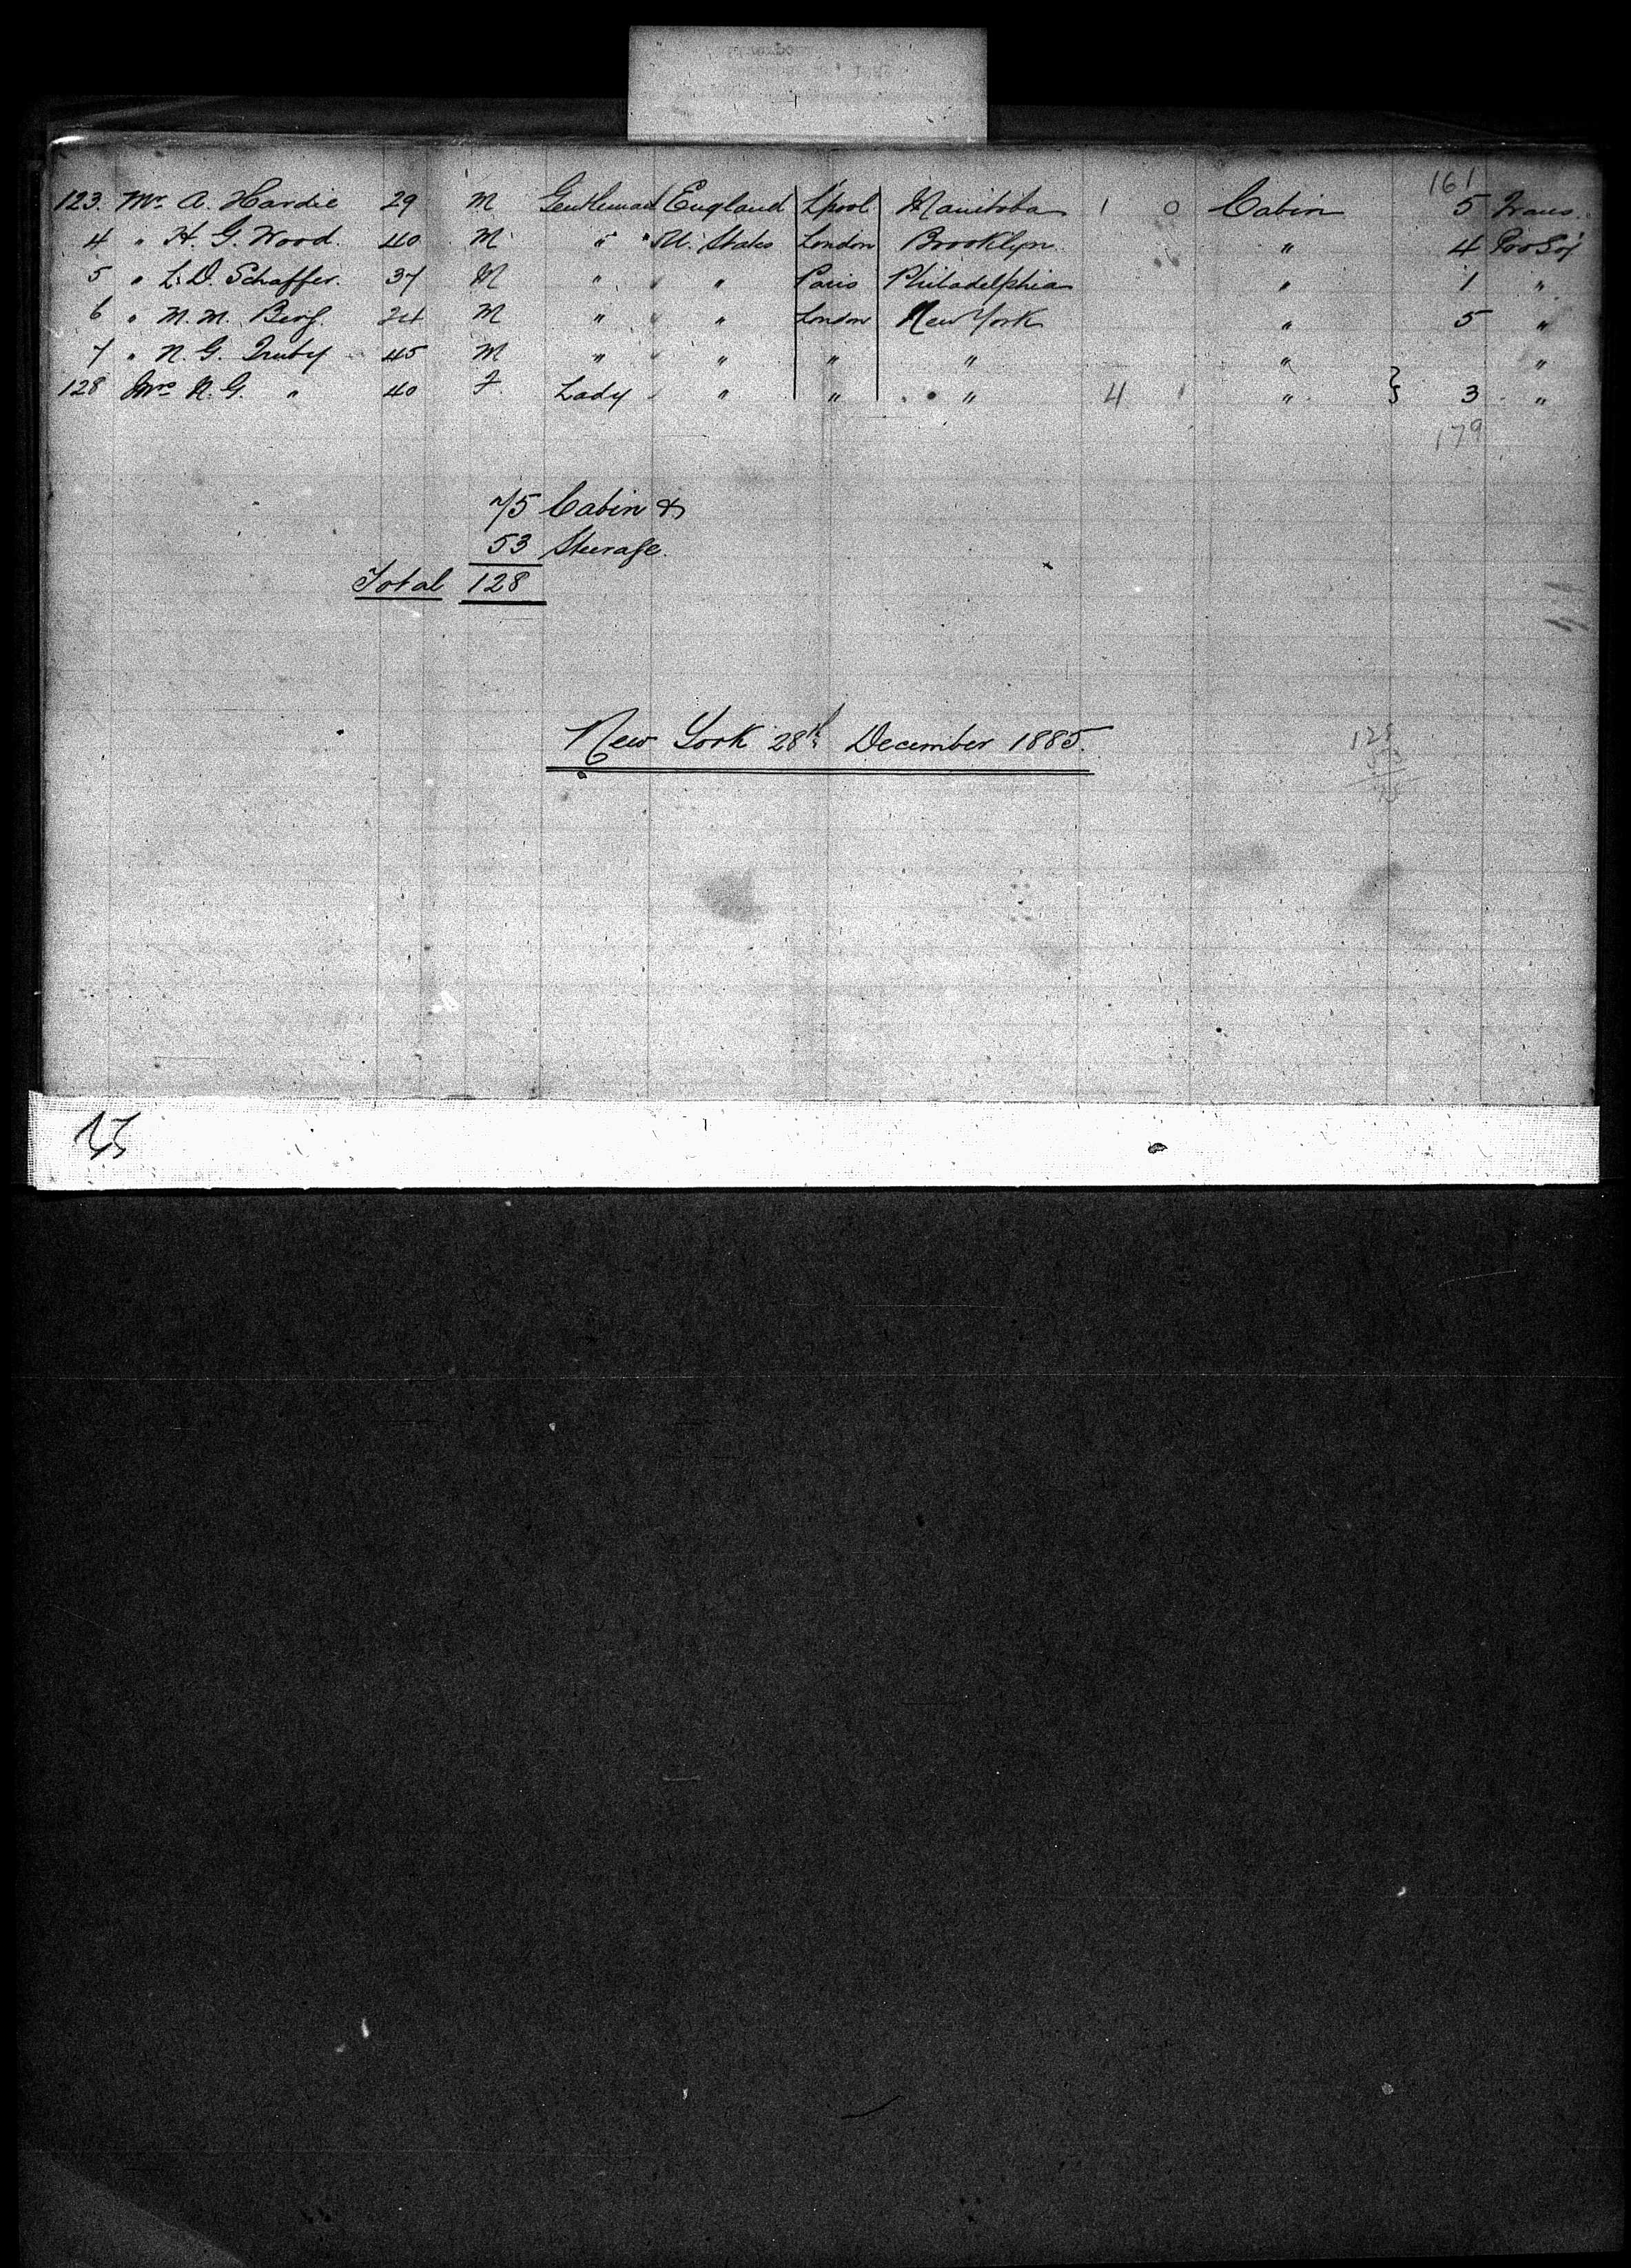 161
123. Mr. A. Hardie 29 M Gentleman England L'pool Manitoba 1 0 Cabin 5 Trans.
4 " H. G. Wood. 40 M " U. States London Brooklyn " 4
5 " L. D. Schaffer. 37 M " " Paris Philadelphia " 1 "
6 " M. M. Berg. 24 M " " London New York " 5 "
7 " N. G. Truby 45 M " " " " " "
128 Mrs N. G. " 40 F. Lady " " " 4 1 " } 3 "
179
75 Cabin &
53 Steerage.
Total 128
New York 28th December 1885.
128
53
75